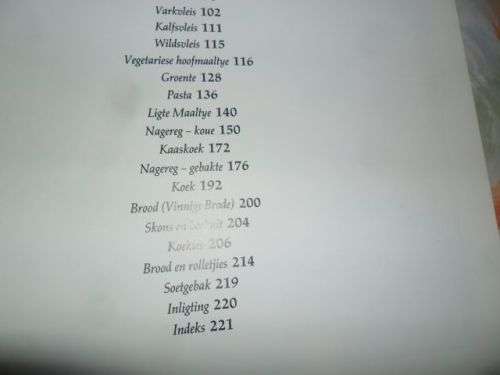 Varkvleis 102
Kalfsvleis 111
Wildsvleis 115
Vegetariese hoofmaaltye 116
Groente 128
Pasta 136
Ligte Maaltye 140
Nagereg – koue 150
Kaaskoek 172
Nagereg – gebakte 176
Koek 192
Brood (Vinnige Brode) 200
Skons en 204
Koekies 206
Brood en rolletjies 214
Soetgebak 219
Inligting 220
Indeks 221